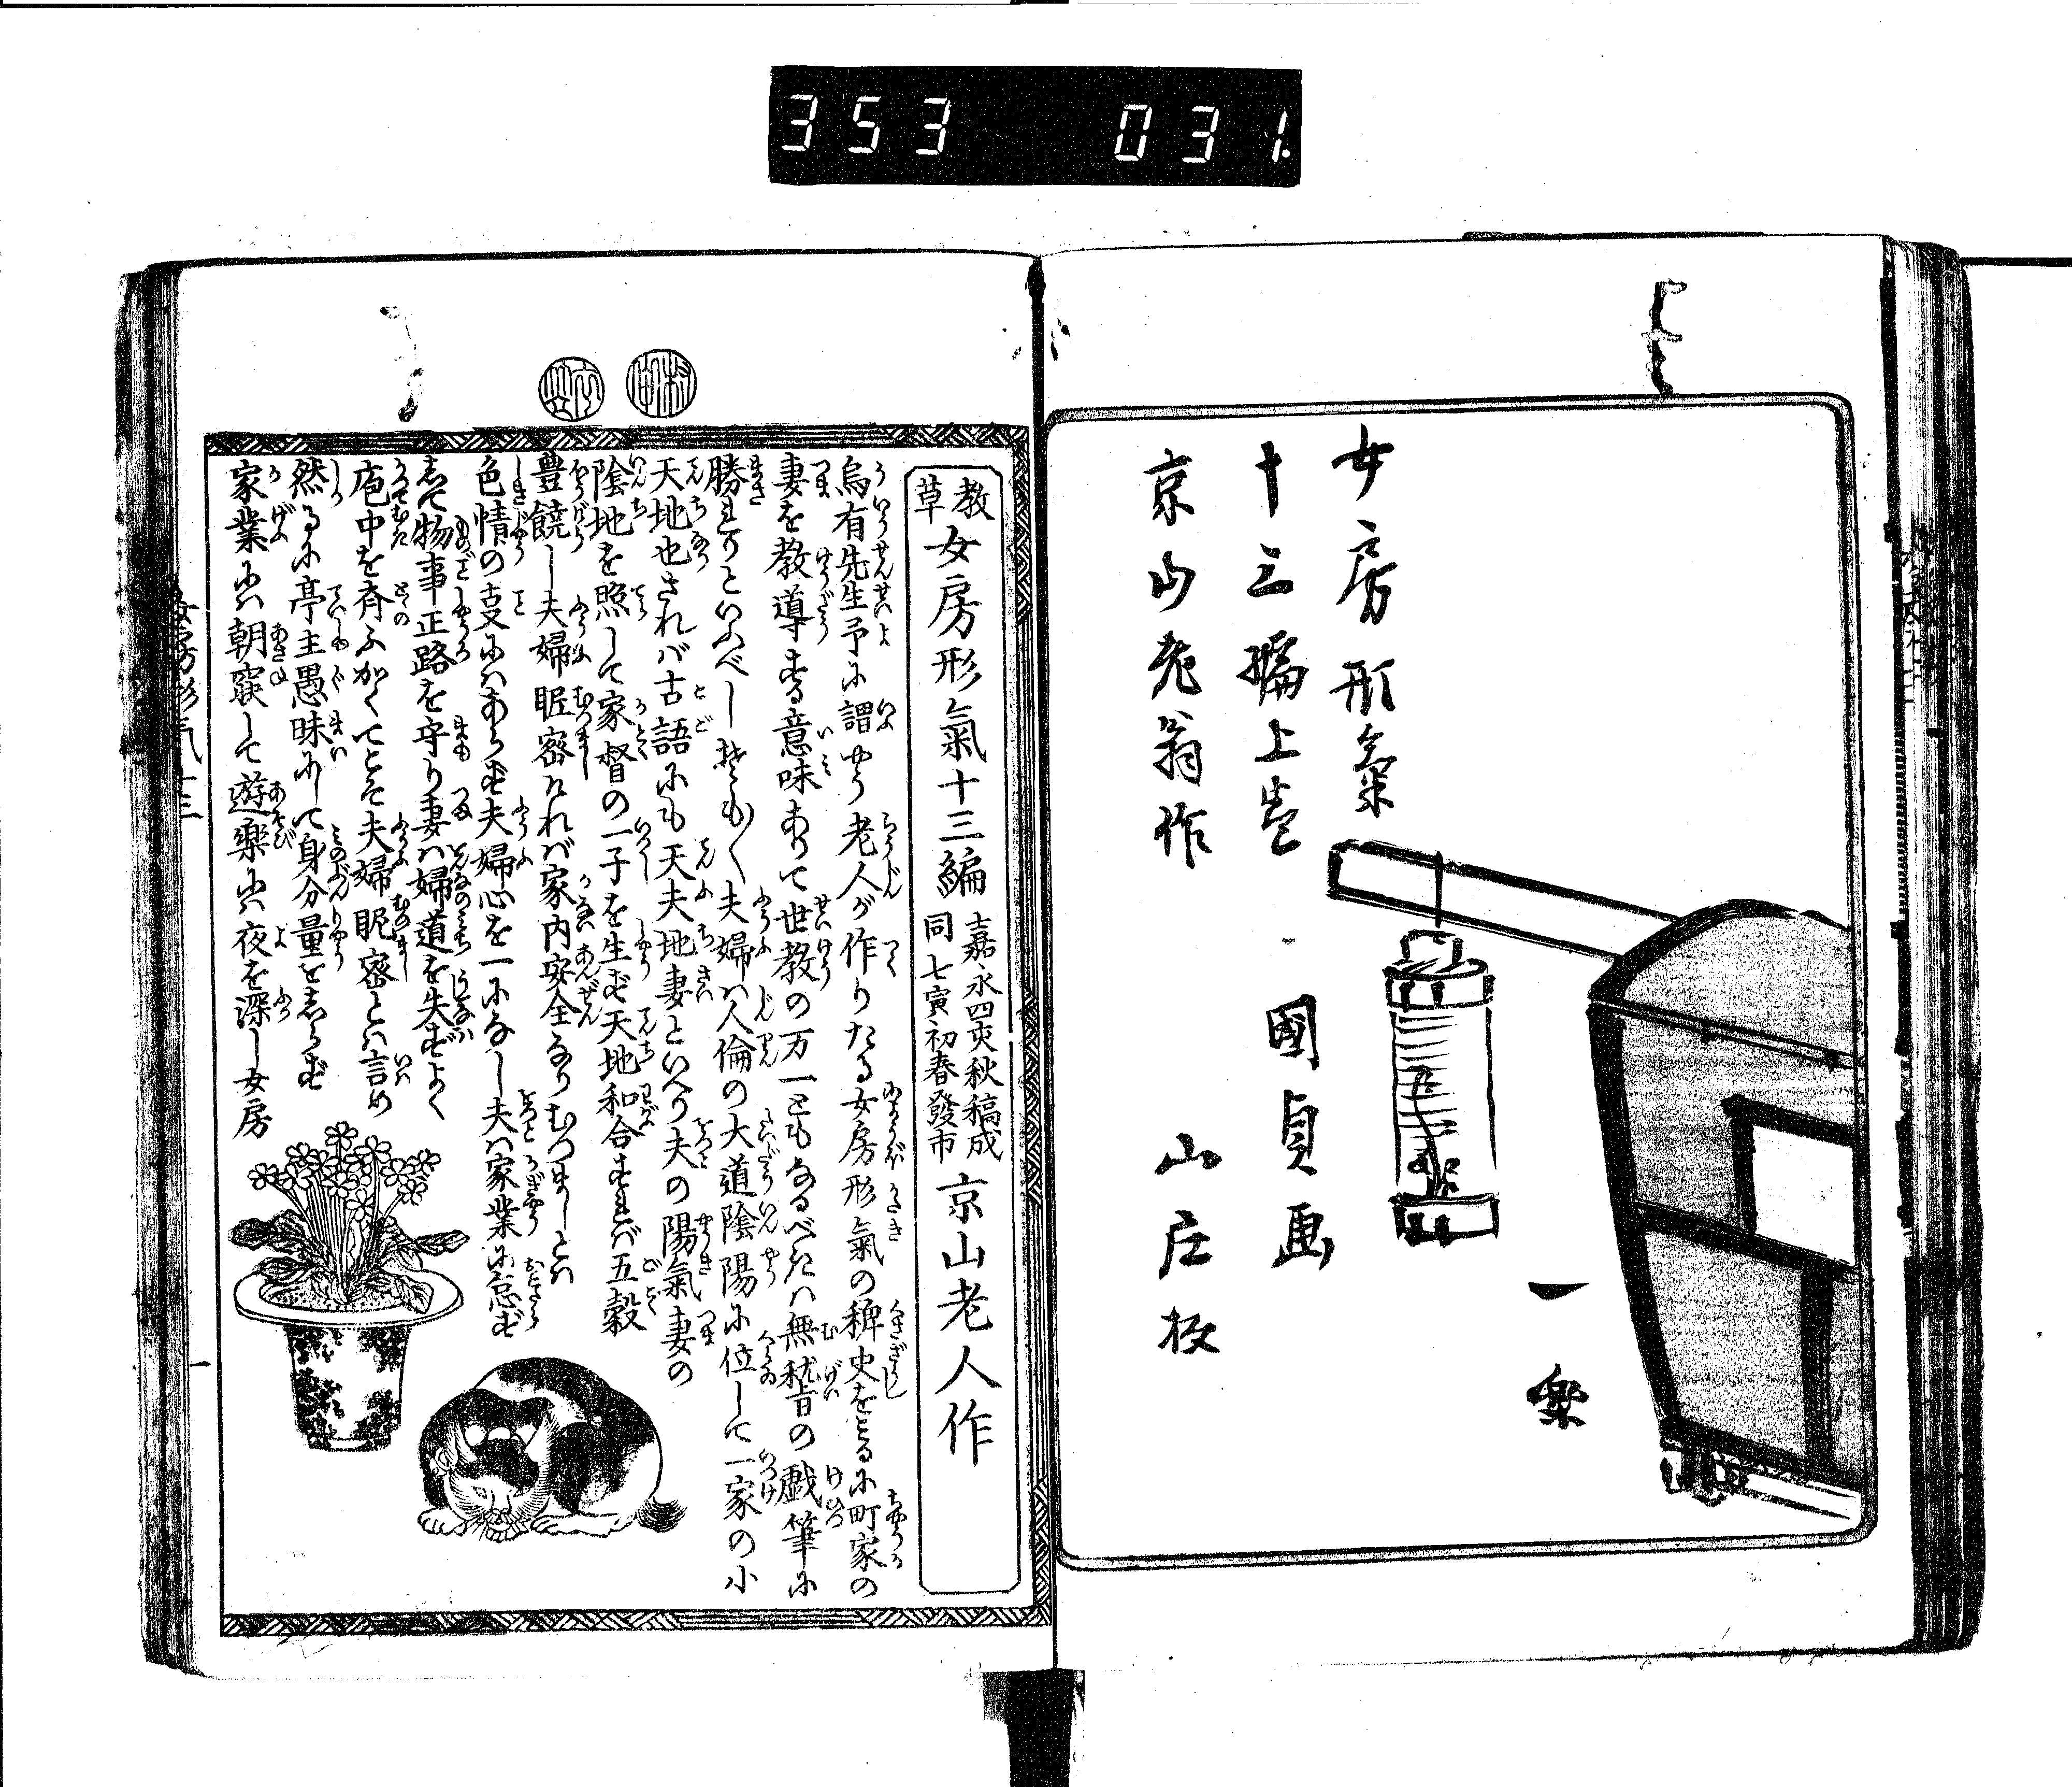 353 031
女房形氣
十三編上巻
京山老翁作
國貞画
山庄板
一樂
教草
女房形氣十三編
嘉永四亥秋稿成
同七寅初春發市
京山老人作
烏有先生予に謂やう老人が作りたる女房形氣の稗史をとるに町家の
妻を教導する意味ありて世教の万一ともなるべきハ無稽の戯筆に
勝れりといふべしそも〳〵夫婦ハ人倫の大道陰陽に位して一家の小
天地也されバ古語にも天夫地妻といへり夫の陽氣妻の
陰地を照して家督の一子を生ず天地和合すれバ五穀
豊饒し夫婦昵密なれバ家内安全なりむつましとハ
色情の支にハあらず夫婦心を一になし夫ハ家業に怠ず
して物事正路を守り妻ハ婦道を失ずよく
庖中を斉ふかくてこそ夫婦昵密とハ言め
然るに亭主愚昧にして身分量をしらず
家業にハ朝寐して遊樂にハ夜を深し女房
女房形氣十三
一